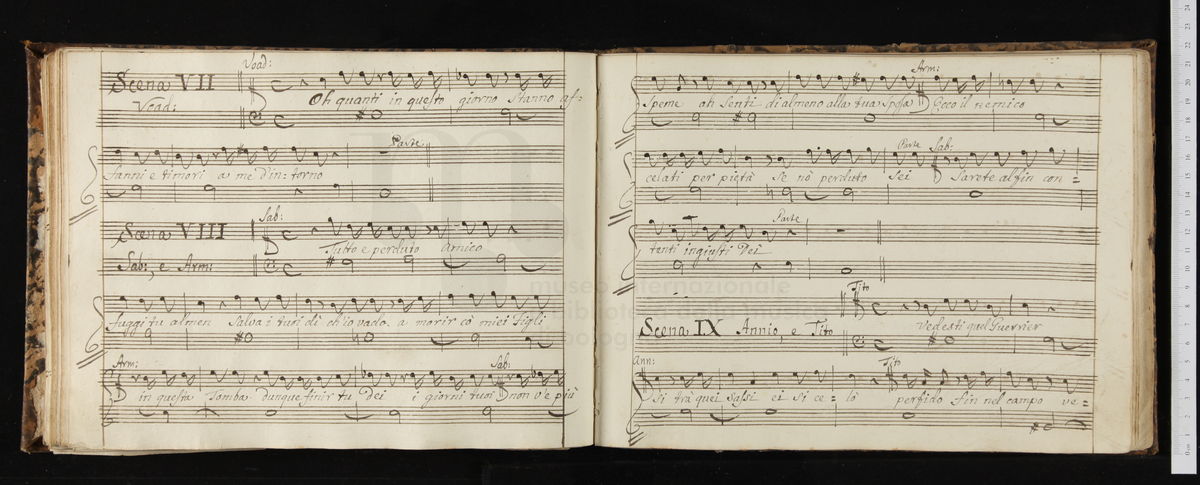 Voad:
Scena VII
Voad:
Oh quanti in questo giorno stanno af=
Parte
fanni e timori a me d'in=torno
Sab:
Scena VIII
Tutto e perduto Amico
Sab:, e Arm:
fuggi tu almen salva i tuoi dì ch'io vado a morir cò miei Figli
Arm:
Sab:
in questa Tomba dunque finir tu dei i giorni tuoi non v'è più
Arm:
speme oh senti dì almeno alla tua sposa Ecco il nemico
Parte Sab:
celati per pietà se nò perduto sei Sarete alfin con=
Parte
tenti ingiusti Dei
Tito
Scena IX Annio, e Tito
Vedesti quel Guerrier
Ann:
Tito
Si trà quei sassi ei si ce=lò perfido fin nel campo ve=
museo internazionale
biblioteca della musica
bologna